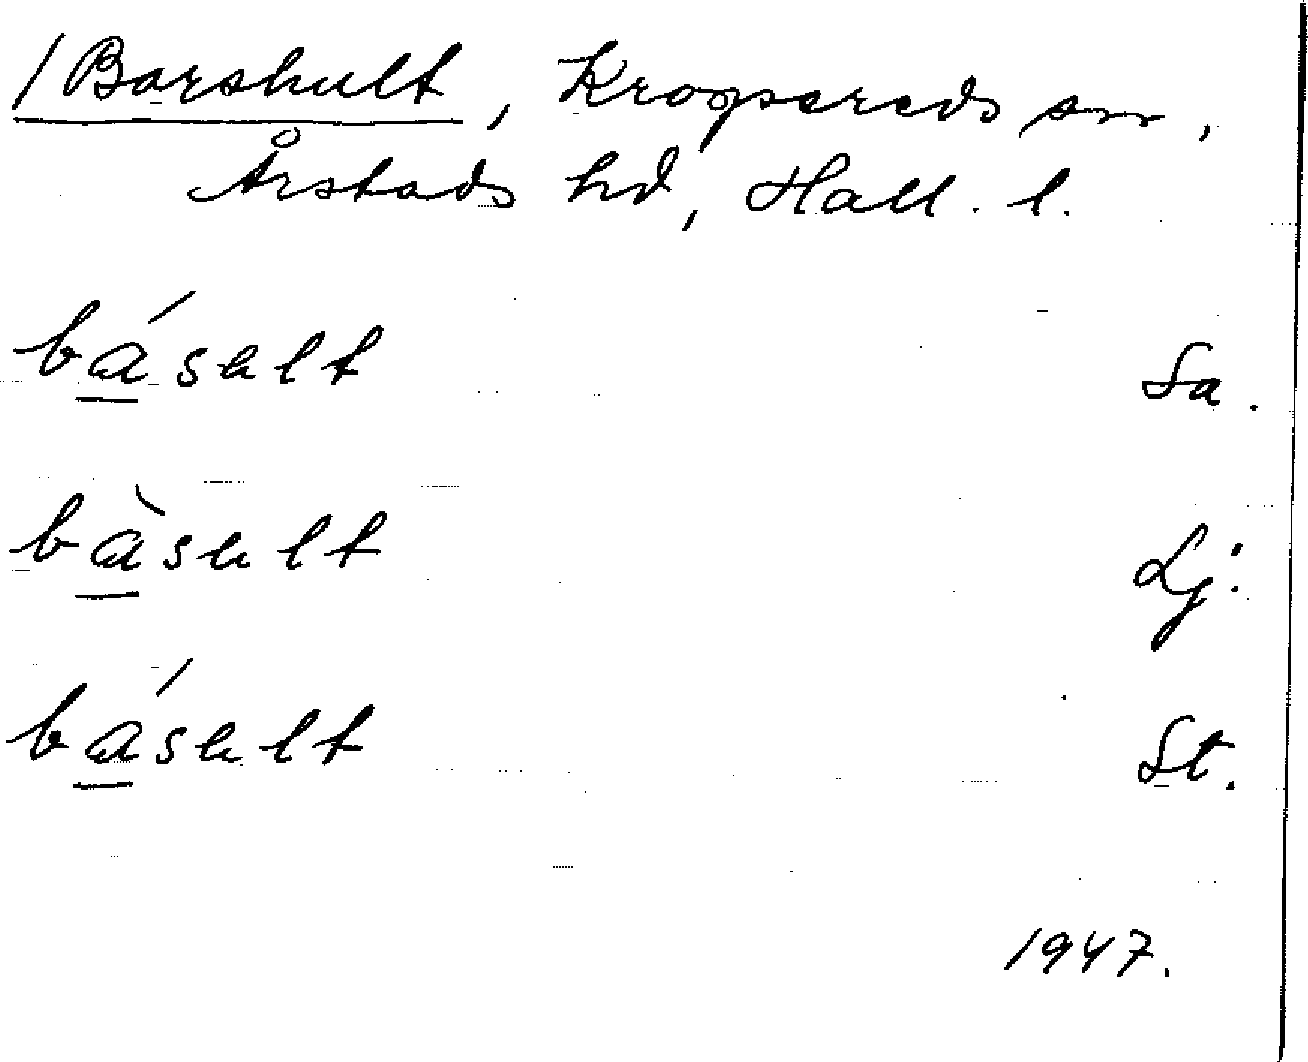 /Barshult, Krogsereds sn,
Årstads hd, Hall. l.
básult Sa.
bàsult Lj.
básult St.
1947.